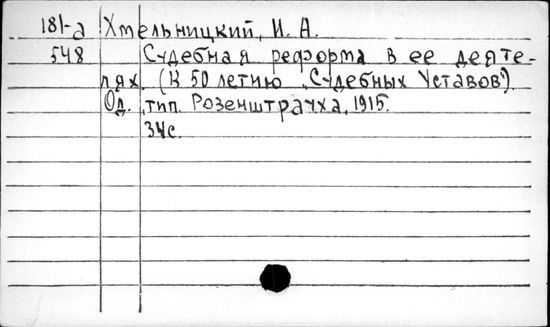 181-а Хмельницкий, И. А.
548 Судебная реформа в ее деяте-
лях. (К 50 летию „Судебных Уставов").
Од., тип. Розенштрауха, 1915.
34с.